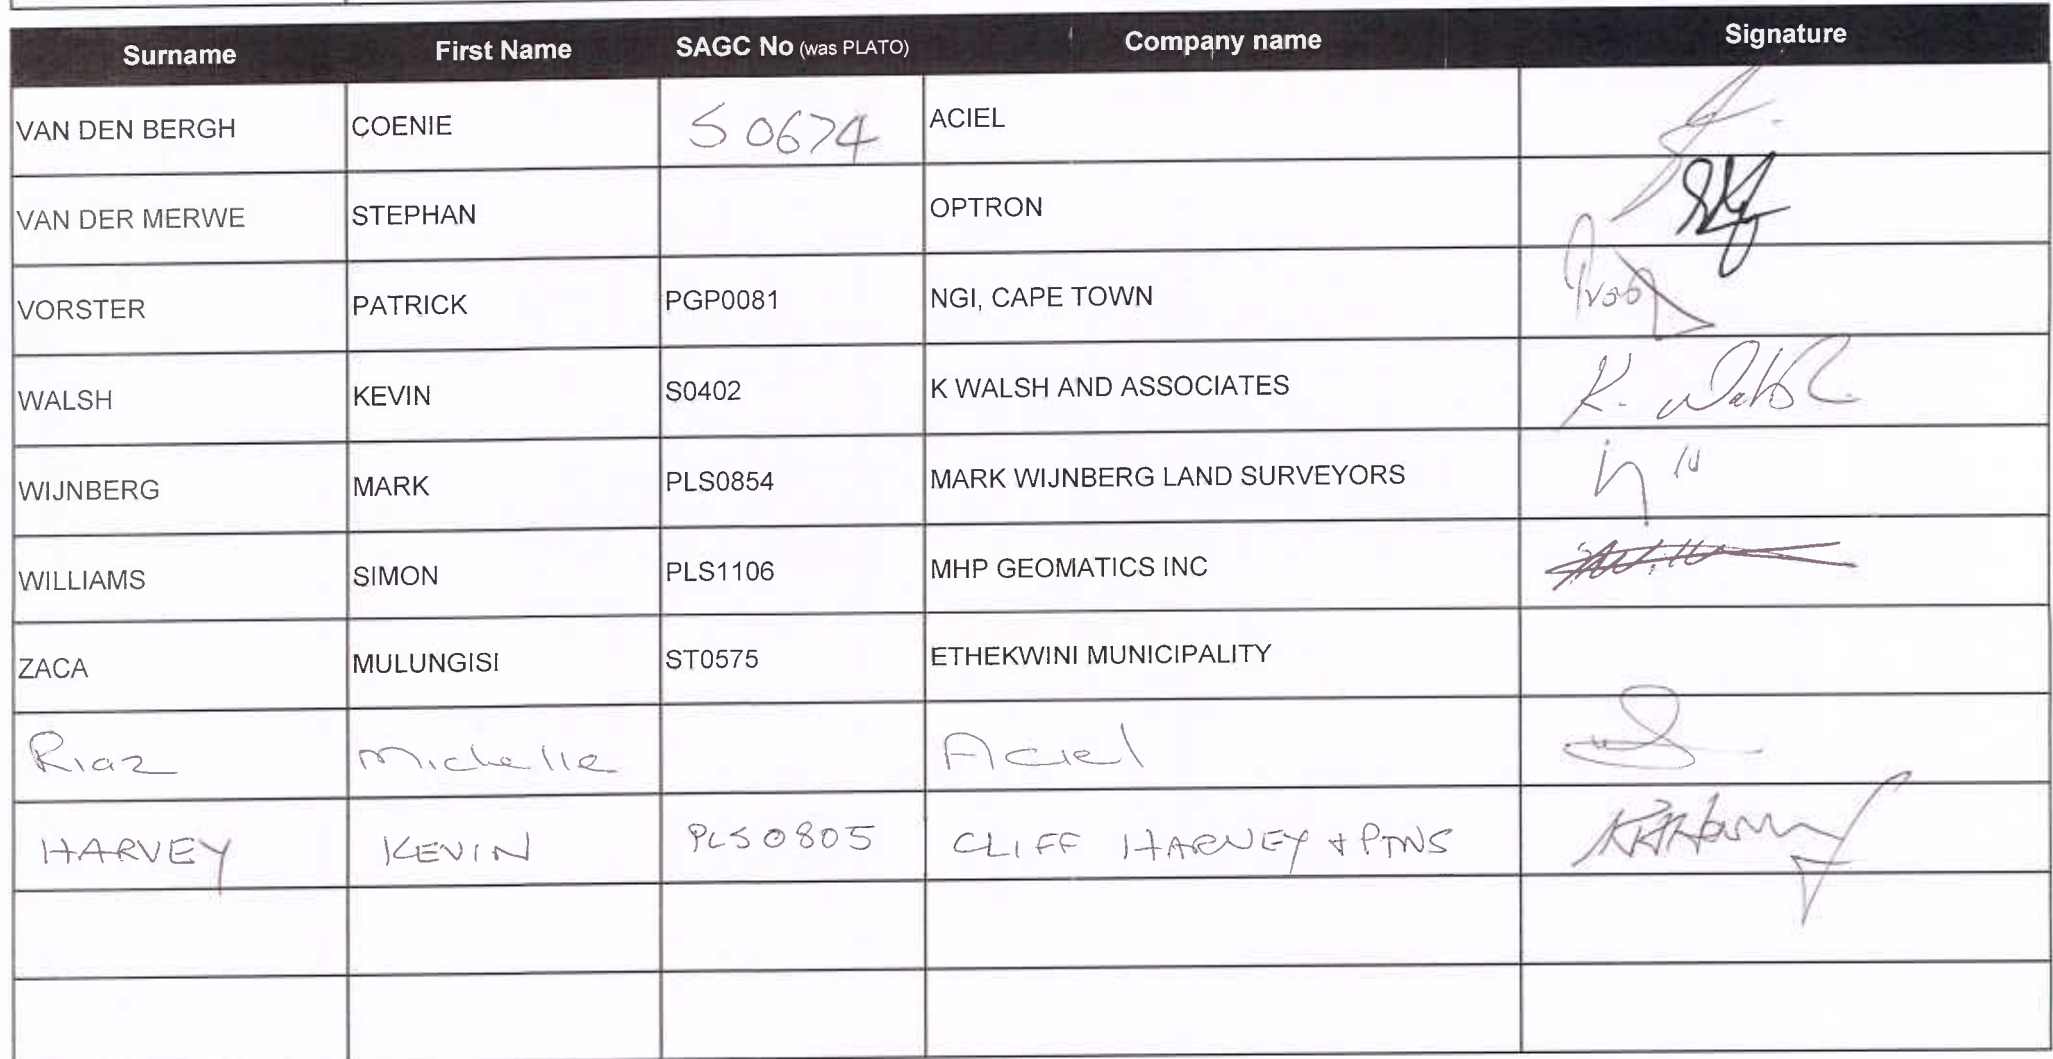 Surname First Name SAGC No (was PLATO) Company name Signature
VAN DEN BERGH COENIE S 0674 ACIEL
VAN DER MERWE STEPHAN OPTRON
VORSTER PATRICK PGP0081 NGI, CAPE TOWN
WALSH KEVIN S0402 K WALSH AND ASSOCIATES K. Walsh
WIJNBERG MARK PLS0854 MARK WIJNBERG LAND SURVEYORS
WILLIAMS SIMON PLS1106 MHP GEOMATICS INC
ZACA MULUNGISI ST0575 ETHEKWINI MUNICIPALITY
Riaz Michelle Aciel
HARVEY KEVIN PLS0805 CLIFF HARVEY + PTNS